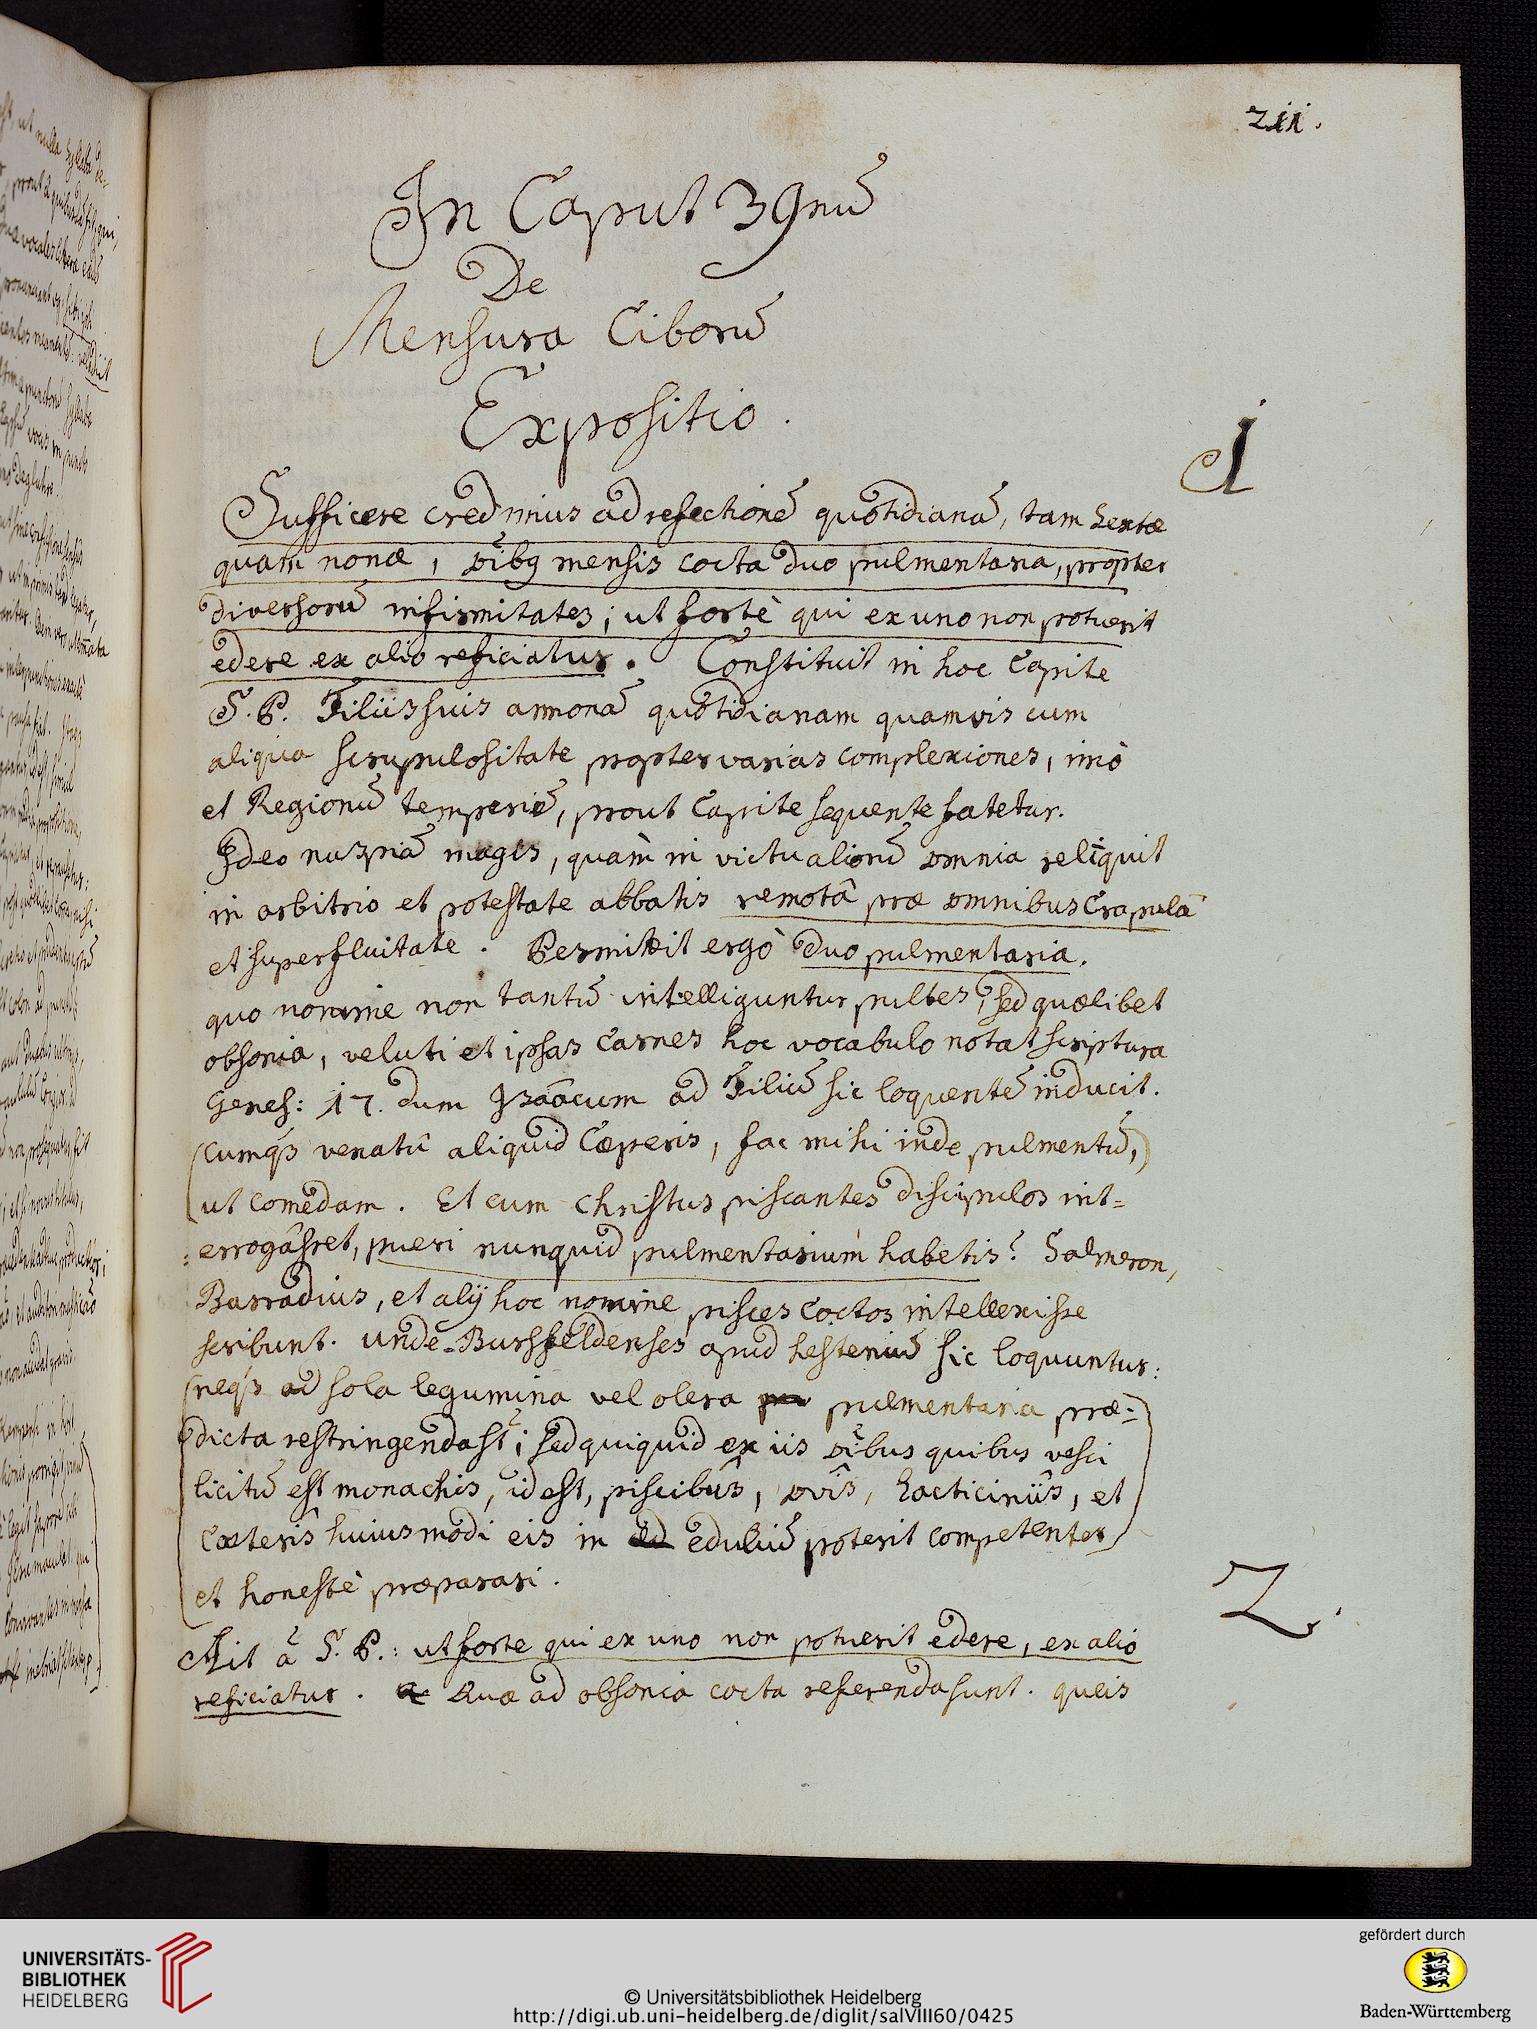 211.
In Caput 39nũ
De
Mensura Ciborũ
Expositio.
1
Sufficere credimus ad refectionẽ quotidianã, tam Sextæ
quam nonæ, õibꝫ mensis cocta duo pulmentaria, propter
diversorũ infirmitates; ut fortè qui ex uno non potuerit
edere ex alio reficiatur. Constituit in hoc Capite
S. P. Filiis suis annonã quotidianam quamvis cum
aliqua scrupulositate propter varias complexiones, imò
et Regionũ temperiẽ, prout Capite sequente fatetur.
Ideo nuspiã magis, quàm in victualiorũ omnia reliquit
in arbitrio et potestate abbatis remotâ præ omnibus Crapulâ
et superfluitate. Permittit ergò duo pulmentaria.
quo nomine non tantũ intelliguntur pultes, sed quælibet
obsonia, veluti et ipsas Carnes hoc vocabulo notat scriptura
Genes: 17. dum Isaacum ad Filiũ sic loquentẽ inducit.
(Cumqꝫ venatũ aliquid Cæperis, fac mihi inde pulmentũ,)
ut comedam. Et cum Christus piscantes discipulos int=
=errogâsset, pueri nunquid pulmentarium habetis? Salmeron,
Barradius, et alij hoc nomine pisces coctos intellexisse
scribunt. unde Bursfeldenses apud heftenũ sic loquuntur:
(neqꝫ ad sola legumina vel olera pulmentaria præ=
dicta restringenda st; sed quiquid ex iis õibus quibus vesci
licitũ est monachis, id est, piscibus, ovis, Lacticiniis, et
Cæteris huiusmodi eis in ed eduliũ poterit competenter)
et honestè præparari.
2.
Ait ã S. P.: ut forte qui ex uno non potuerit edere, ex alio
reficiatur. Quæ ad obsonia cocta referenda sunt. queis
UNIVERSITÄTS-
BIBLIOTHEK
HEIDELBERG
© Universitätsbibliothek Heidelberg
http://digi.ub.uni-heidelberg.de/diglit/salVIII60/0425
gefördert durch
Baden-Württemberg